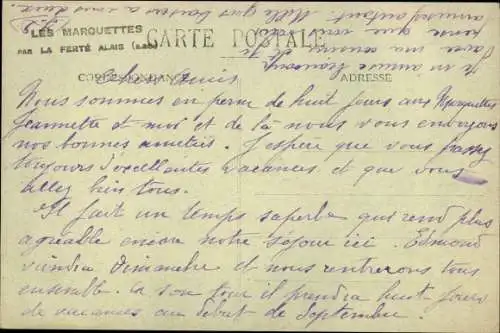 LES MARQUETTES
PAR LA FERTÉ ALAIS (S.&O.)
CARTE POSTALE
CORRESPONDANCE
ADRESSE
Chers Amis
Nous sommes en perme de huit jours aux Marquettes
Jeannette et moi et de là nous vous envoyons
nos bonnes amitiés. J'espère que vous passez
toujours d'excellentes vacances et que vous
allez bien tous.
Il fait un temps superbe qui rend plus
agréable encore notre séjour ici. Edmond
viendra Dimanche et nous rentrerons tous
ensemble. A son tour il prendra huit jours
de vacances au début de Septembre.
Je m'amuse beaucoup
avec ma cousine et je
pense que vous vous
amusez autant. Mille gros baisers à vous deux.